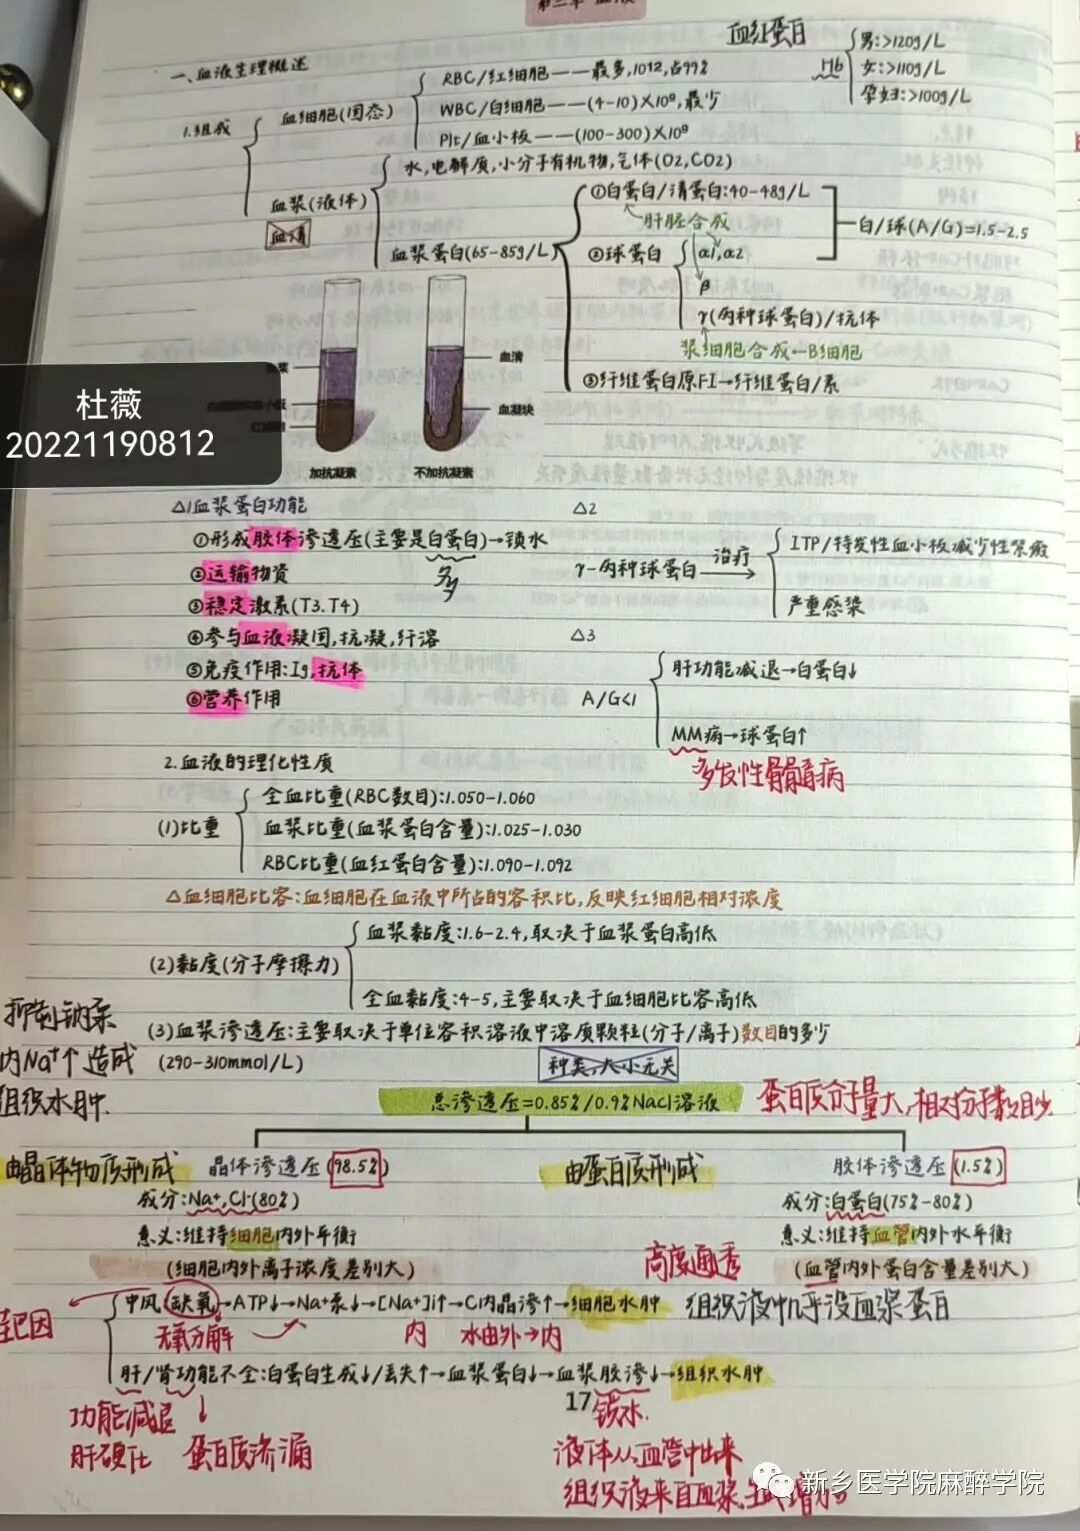 第二章 血液
血红蛋白
一、血液生理概述
Hb
男:>120g/L
女:>110g/L
孕妇:>100g/L
1.组成
血细胞(固态)
RBC/红细胞——最多,1012,占99%
WBC/白细胞——(4-10)X10⁹,最少
Plt/血小板——(100-300)X10⁹
血浆(液体)
血清
水,电解质,小分子有机物,气体(O2,CO2)
血浆蛋白(65-85g/L)
①白蛋白/清蛋白:40-48g/L
肝脏合成
②球蛋白
α1,α2
β
γ(丙种球蛋白)/抗体
浆细胞合成←B细胞
白/球(A/G)=1.5-2.5
③纤维蛋白原FI→纤维蛋白/素
血清
血凝块
加抗凝素
不加抗凝素
杜薇
20221190812
△1血浆蛋白功能
①形成胶体渗透压(主要是白蛋白)→锁水
多
②运输物资
③稳定激素(T3.T4)
④参与血液凝固,抗凝,纤溶
⑤免疫作用:Ig,抗体
⑥营养作用
△2
γ-丙种球蛋白
治疗
ITP/特发性血小板减少性紫癜
严重感染
△3
A/G<1
肝功能减退→白蛋白↓
MM病→球蛋白↑
多发性骨髓病
2.血液的理化性质
(1)比重
全血比重(RBC数目):1.050-1.060
血浆比重(血浆蛋白含量):1.025-1.030
RBC比重(血红蛋白含量):1.090-1.092
△血细胞比容:血细胞在血液中所占的容积比,反映红细胞相对浓度
(2)黏度(分子摩擦力)
血浆黏度:1.6-2.4,取决于血浆蛋白高低
全血黏度:4-5,主要取决于血细胞比容高低
(3)血浆渗透压:主要取决于单位容积溶液中溶质颗粒(分子/离子)数目的多少
(290-310mmol/L)
种类,大小无关
抑制钠泵
内Na⁺↑造成
组织水肿.
总渗透压=0.85%/0.9%NaCl溶液
蛋白质分子量大,相对分子数目少
由晶体物质形成
晶体渗透压(98.5%)
成分:Na⁺,Cl⁻(80%)
意义:维持细胞内外平衡
(细胞内外离子浓度差别大)
由蛋白质形成
胶体渗透压(1.5%)
成分:白蛋白(75%-80%)
意义:维持血管内外水平衡
(血管内外蛋白含量差别大)
高度通透
组织液中几乎没血浆蛋白
中风(缺氧)→ATP↓→Na⁺泵↓→[Na⁺]i↑→C内晶渗↑→细胞水肿
无氧分解
内
水由外→内
肝/肾功能不全:白蛋白生成↓/丢失↑→血浆蛋白↓→血浆胶渗↓→组织水肿
功能减退
肝硬化
蛋白质渗漏
17
锁水.
液体从血管中出来
组织液来自血浆,生成增加
新乡医学院麻醉学院